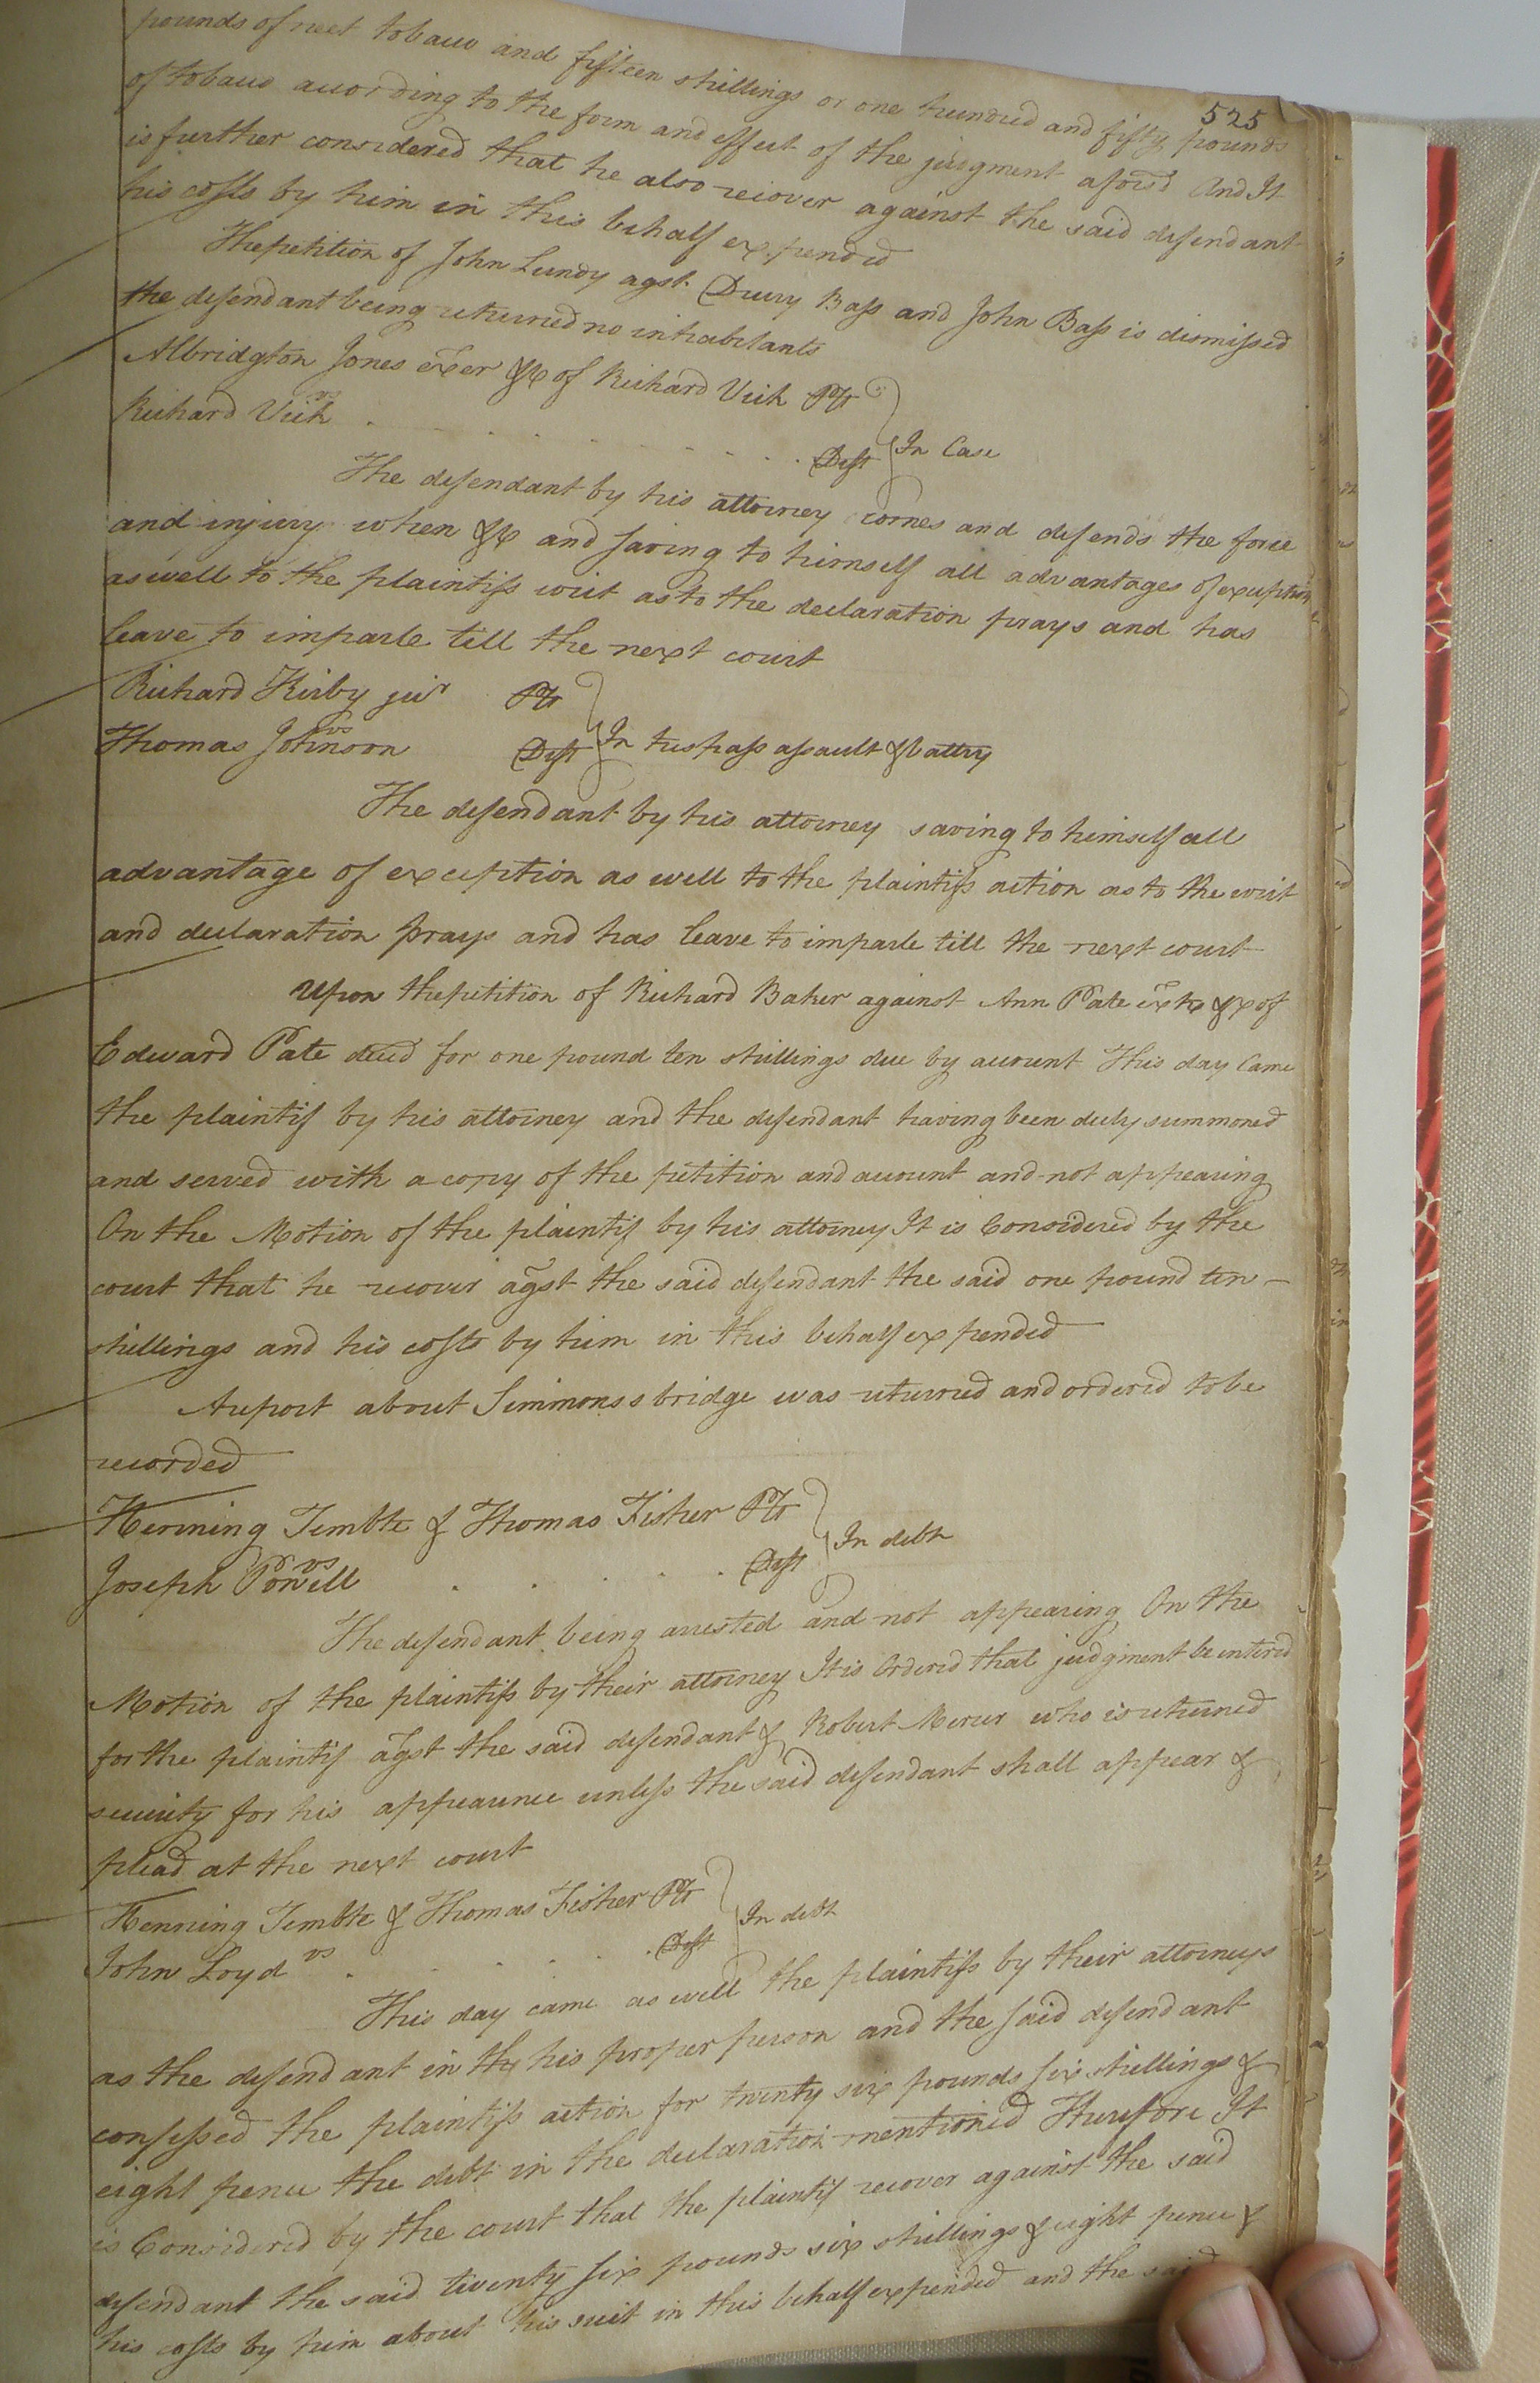 525
pounds of neet tobacco and fifteen shillings or one hundred and fifty pounds
of tobacco according to the form and effect of the judgment afors'd And It
is further considered that he also recover against the said defendant
his costs by him in this behalf expended
The petition of John Lundy agst. Drury Bass and John Bass is dismissed
the defendant being returned no inhabitants
Albridgton Jones exer &c of Richard Vick Pltf
vs
Richard Vick . . . . . . . . Deft
In Case
The defendant by his attorney comes and defends the force
and injury when &c and saving to himself all advantages of exception
as well to the plaintifs writ as to the declaration prays and has
leave to imparle till the next court
Richard Kirby junr Pltf
vs
Thomas Johnson Deft
In trespass assault & battry
The defendant by his attorney saving to himself all
advantage of exception as well to the plaintifs action as to the writ
and declaration prays and has leave to imparle till the next court
Upon the petition of Richard Baker against Ann Pate extx &c of
Edward Pate decd for one pound ten shillings due by account This day Came
the plaintif by his attorney and the defendant having been duly summoned
and served with a copy of the petition and account and not appearing
On the Motion of the plaintif by his attorney It is Considered by the
court that he recover agst the said defendant the said one pound ten
shillings and his costs by him in this behalf expended
A report about Simmonss bridge was returned and ordered to be
recorded
Henning Tembte & Thomas Fisher Pltf
vs
Joseph Powell . . . . . . Deft
In debt
The defendant being arrested and not appearing On the
Motion of the plaintifs by their attorney It is Ordered that judgment be entered
for the plaintif agst the said defendant & Robert Mercer who is returned
security for his appearance unless the said defendant shall appear &
plead at the next court
Henning Tembte & Thomas Fisher Pltf
vs
John Loyd . . . . . . Deft
In debt
This day came as well the plaintifs by their attorneys
as the defendant in his proper person and the said defendant
confessed the plaintifs action for twenty six pounds six shillings &
eight pence the debt in the declaration mentioned Therefore It
is Considered by the court that the plaintif recover against the said
defendant the said twenty six pounds six shillings & eight pence &
his costs by him about his suit in this behalf expended and the said